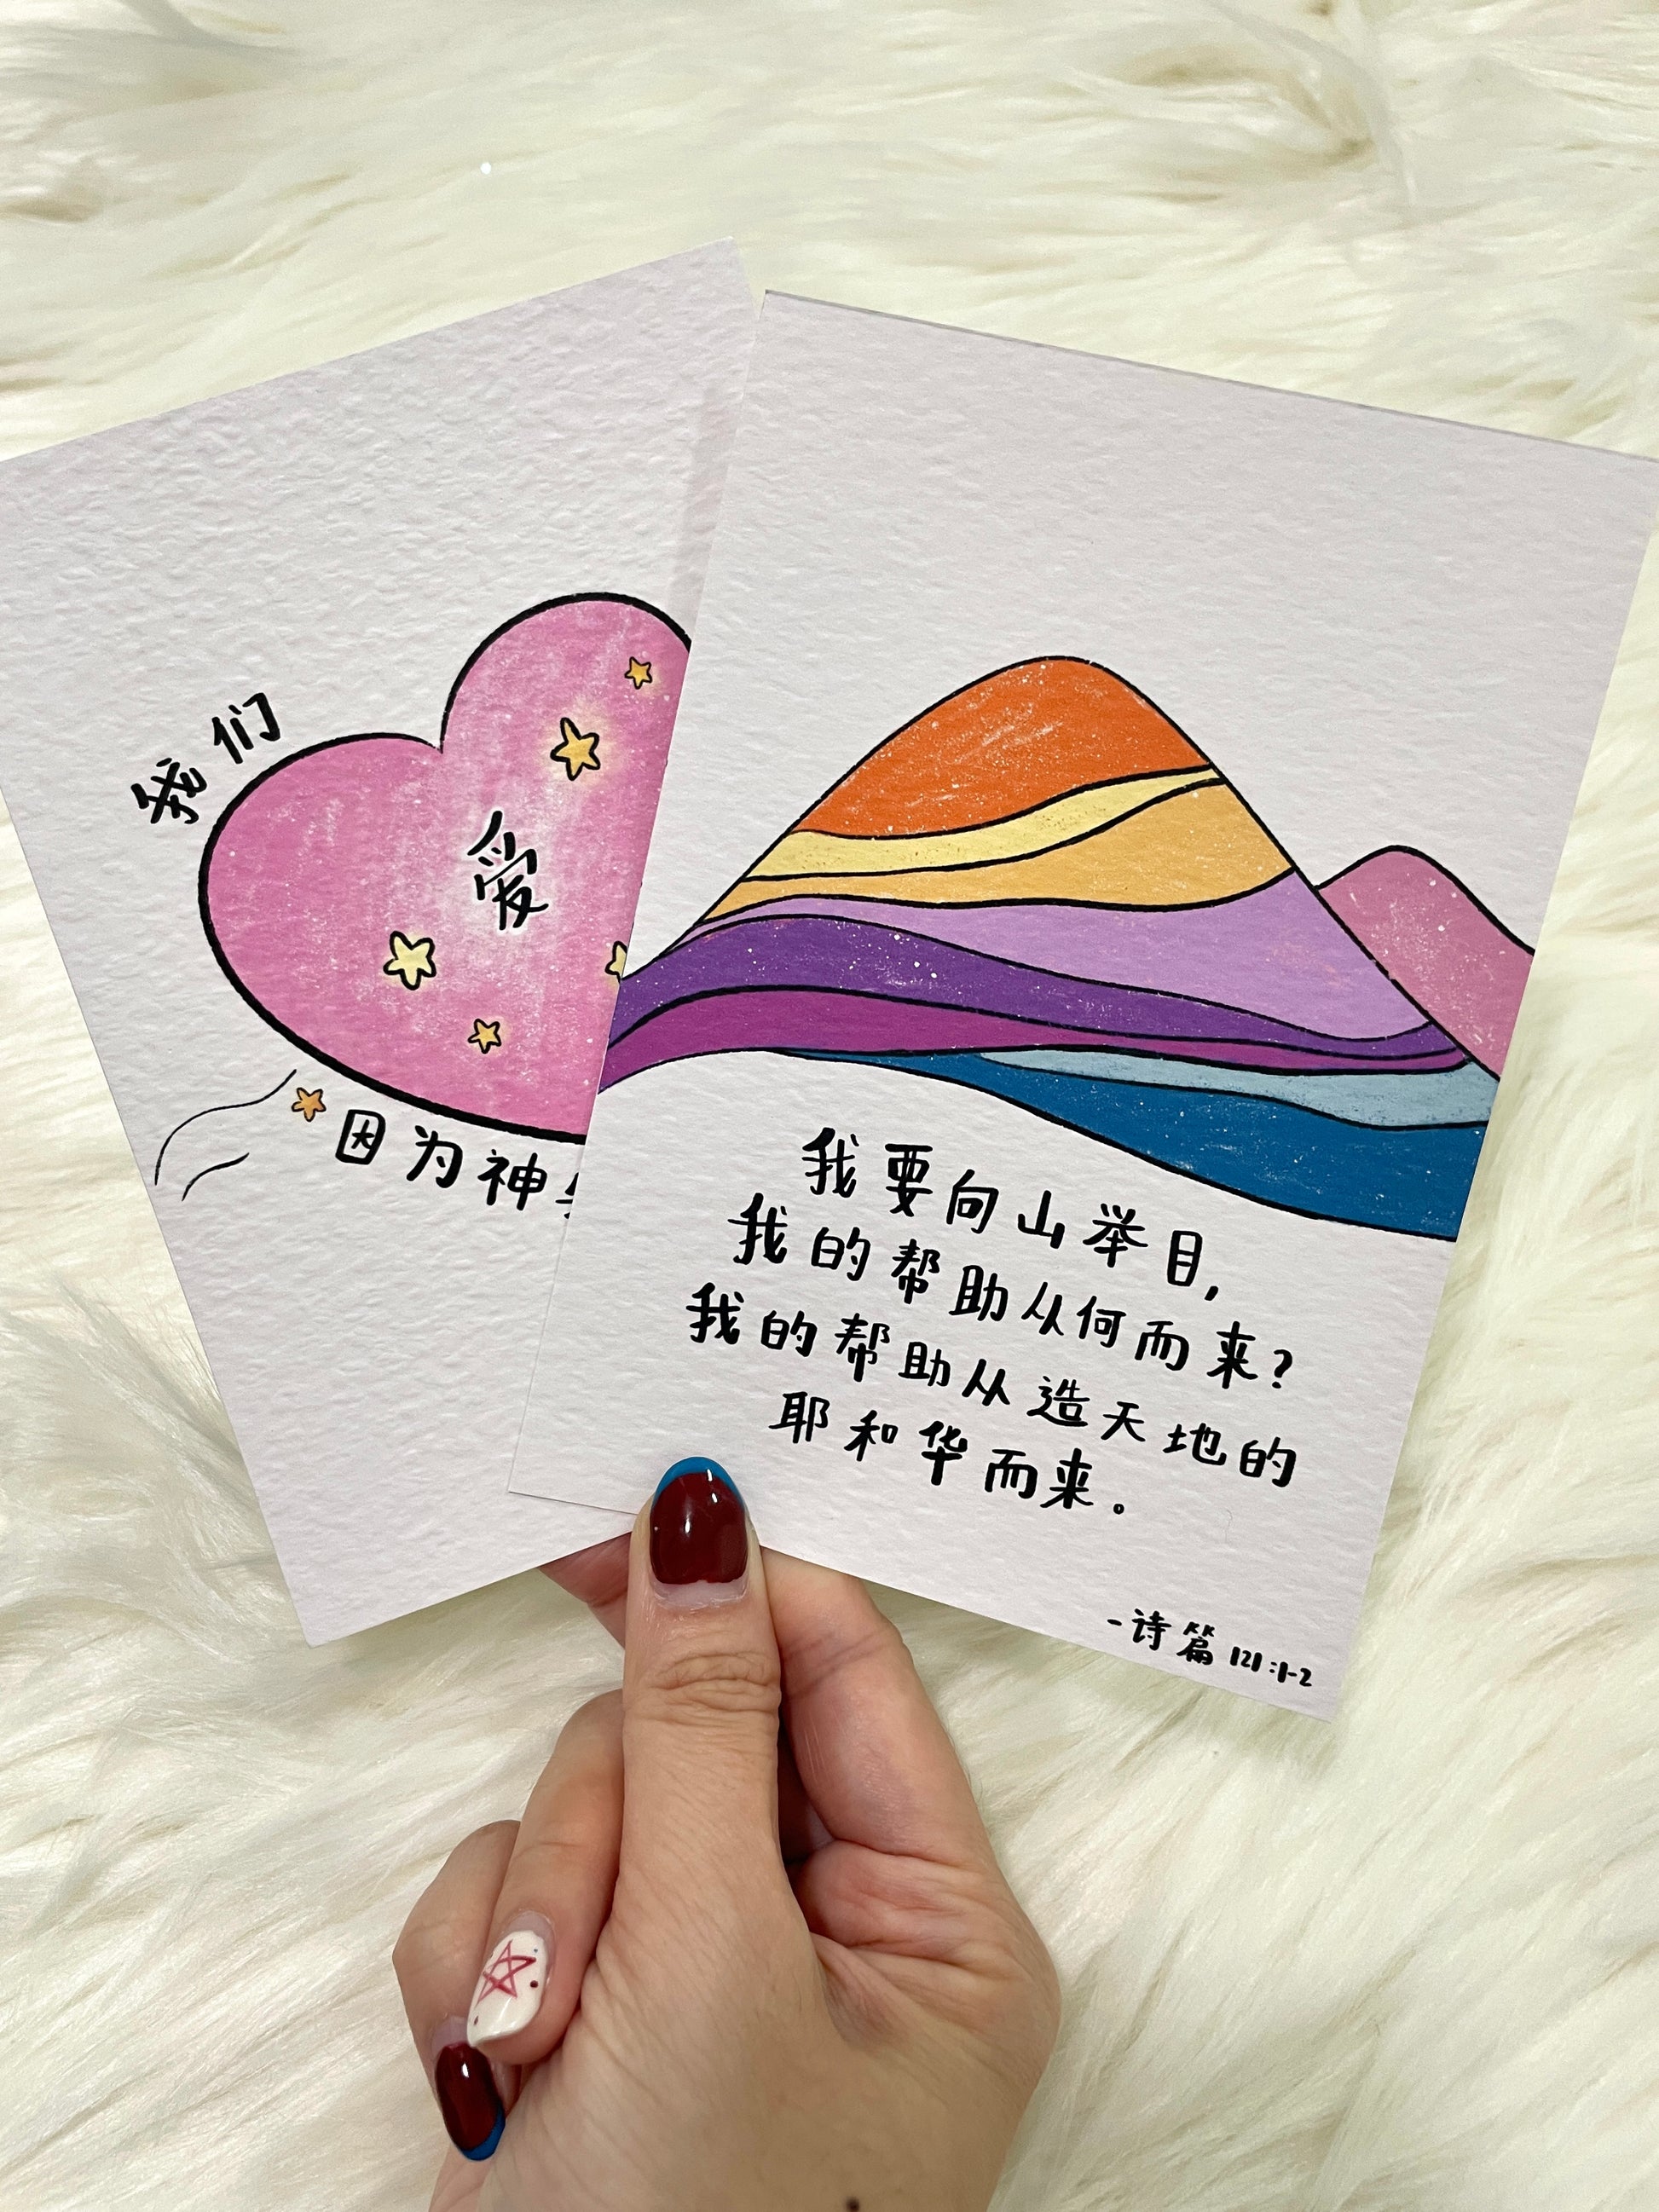 我们
爱
因为神
我要向山举目，
我的帮助从何而来？
我的帮助从造天地的
耶和华而来。
-诗篇 121:1-2